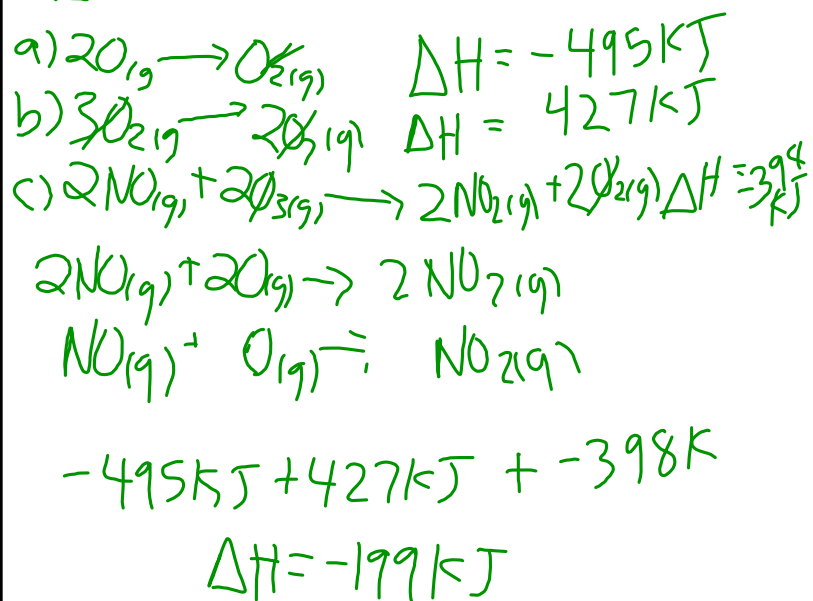 a) 2O(g → O2(g) ΔH = -495KJ
b) 3O2(g → 2O3(g) ΔH = 427KJ
c) 2NO(g) + 2O3(g) → 2NO2(g) + 2O2(g) ΔH = -394 KJ
2NO(g) + 2O(g) → 2NO2(g)
NO(g) + O(g) → NO2(g)
-495KJ + 427KJ + -398K
ΔH = -199KJ